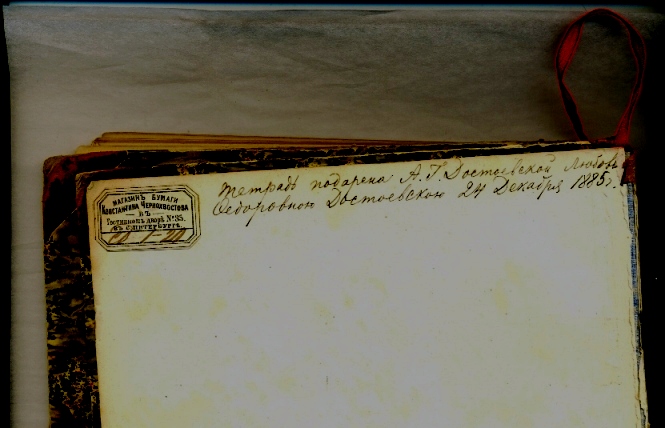 МАГАЗИНЪ БУМАГИ
КОНСТАНТИНА ЧЕРНОХВОСТОВА
ВЪ
ГОСТИННОМЪ ДВОРѢ №35.
ВЪ С.ПЕТЕРБУРГѢ
Тетрадь подарена А. Г. Достоевской Любовь
Ѳедоровною Достоевскою 24 Декабря 1885 г.